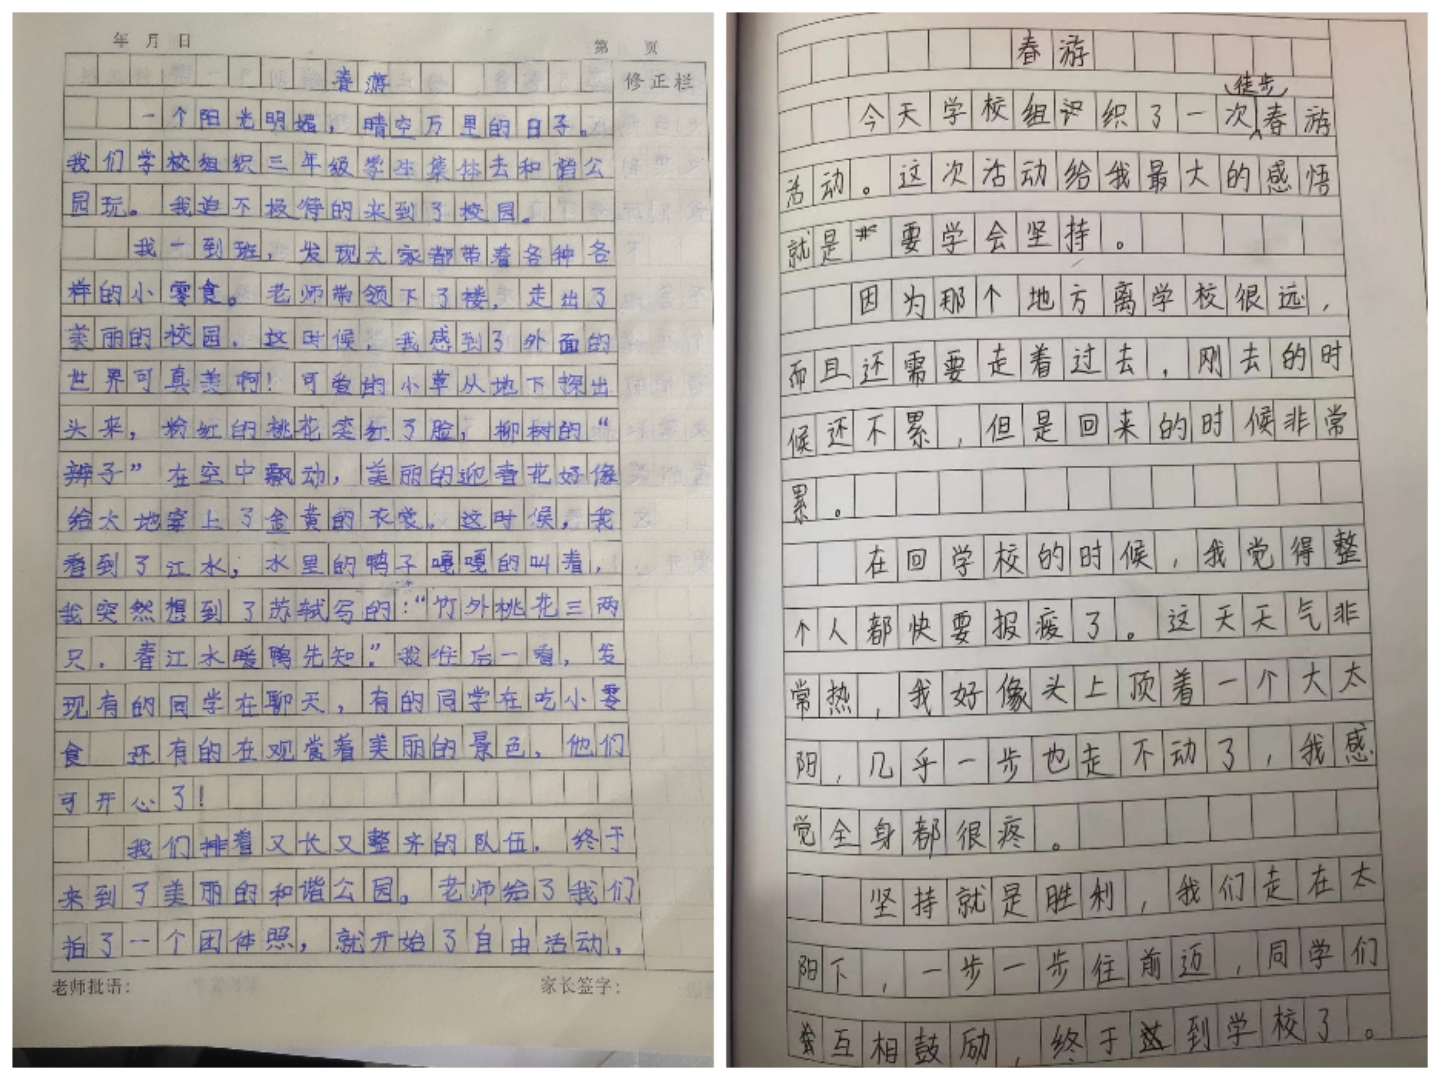 年 月 日
第 页
春游
修正栏
一个阳光明媚，晴空万里的日子。
我们学校组织三年级学生集体去和谐公
园玩。我迫不极待的来到了校园。
我一到班，发现大家都带着各种各
样的小零食。老师带领下了楼，走出了
美丽的校园，这时候，我感到了外面的
世界可真美啊！可爱的小草从地下探出
头来，粉红的桃花笑红了脸，柳树的“
辨子”在空中飘动，美丽的迎春花好像
给大地穿上了金黄的衣裳。这时候，我
看到了江水，水里的鸭子嘎嘎的叫着，
我突然想到了苏轼写的：“竹外桃花三两
只，春江水暖鸭先知”。我往后一看，发
现有的同学在聊天，有的同学在吃小零
食 还有的在观赏着美丽的景色，他们
可开心了！
我们排着又长又整齐的队伍，终于
来到了美丽的和谐公园。老师给了我们
拍了一个团体照，就开始了自由活动，
老师批语：
家长签字：
春游
徒步
今天学校组织了一次春游
活动。这次活动给我最大的感悟
就是要学会坚持。
因为那个地方离学校很远，
而且还需要走着过去，刚去的时
候还不累，但是回来的时候非常
累。
在回学校的时候，我觉得整
个人都快要报废了。这天天气非
常热，我好像头上顶着一个大太
阳，几乎一步也走不动了，我感
觉全身都很疼。
坚持就是胜利，我们走在太
阳下，一步一步往前迈，同学们
互相鼓励，终于到学校了。